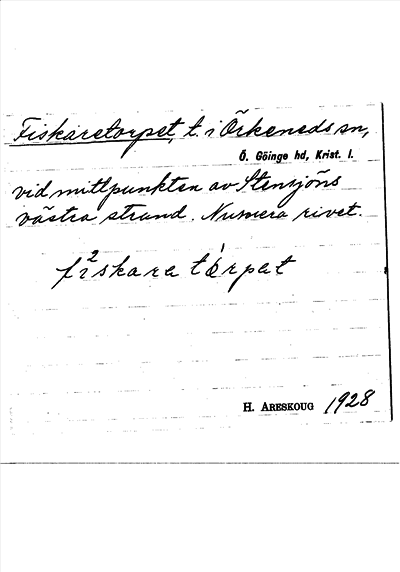 Fiskaretorpet, t. i Örkeneds sn,
Ö. Göinge hd, Krist. l.
vid mittpunkten av Stensjöns
västra strand. Numera rivet.
fi²skara tórpat
H. ARESKOUG 1928